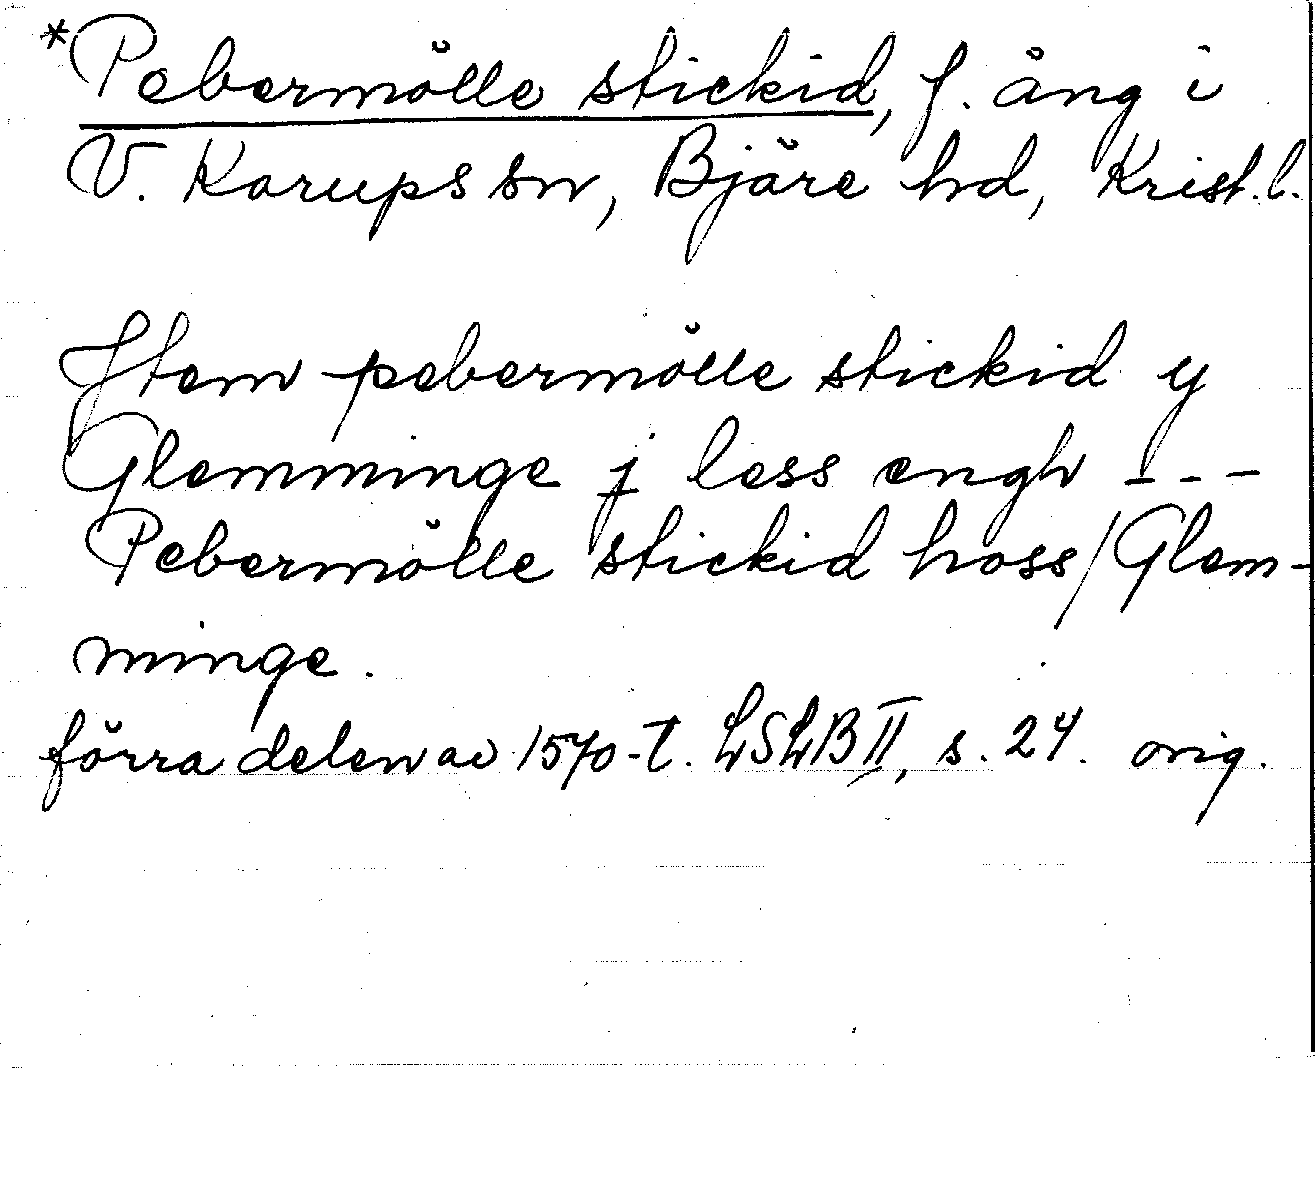 *Pebermölle stickid, f. äng i
V. Karups sn, Bjäre hd, Krist.l.
Item pebermölle stickid y
Glemminge j less engh ---
Pebermölle stickid hoss/Glem-
minge.
förra delen av 1570-t. LSLB II, s. 24. orig.